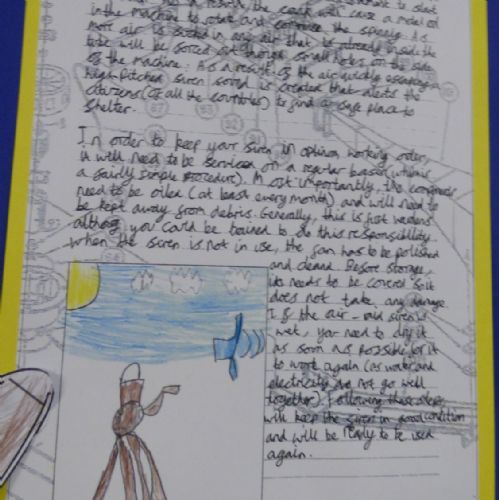 the crank will cause a metal rod
in the machine to rotate and the speeds. As
more air is in any air that is already inside the
tube will be forced out through small holes on the side
of the machine. As a result of the air quickly escaping a
high-pitched siren sound is created that alerts the
citizens (of all the countries) to find a safe place to
shelter.
In order to keep your siren in working order,
it will need to be serviced on a regular basis (which is
a fairly simple procedure). Most importantly, the
need to be oiled (at least every month) and will need to
be kept away from debris. Generally, this is just wardens
although you could be trained to do this responsibility.
When the siren is not in use, the fan has to be polished
and cleaned. Before storage,
it needs to be covered so it
does not take any damage.
If the air-raid siren is
wet, you need to dry it
as soon as possible for it
to work again (as water and
electricity do not go well
together). Following these steps
will keep the siren in good condition
and will be ready to be used
again.